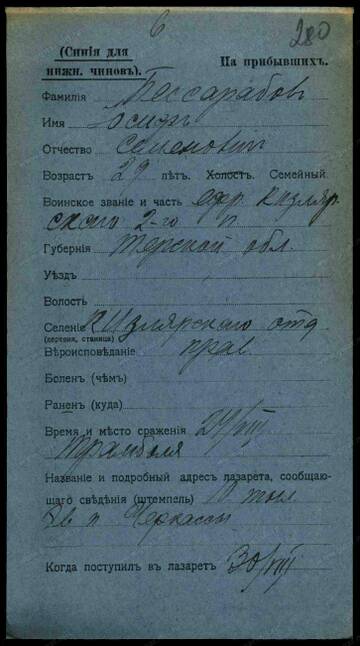 6
280
(Синія для
нижн. чиновъ).
На прибывшихъ.
Фамилія Бессарабовъ
Имя Осипъ
Отчество Семеновичъ
Возрастъ 29 лѣтъ. Холостъ. Семейный.
Воинское званіе и часть ефр. Кизляр
скаго 2-го п
Губернія Терской обл.
Уѣздъ
Волость
Селеніе Кизлярскаго отд
(деревня, станица)
Вѣроисповѣданіе прав.
Боленъ (чѣмъ)
Раненъ (куда)
Время и мѣсто сраженія 24/VIII
Названіе и подробный адресъ лазарета, сообщаю-
щаго свѣдѣнія (штемпель) тыл.
п Черкассы
Когда поступилъ въ лазаретъ 30/VIII